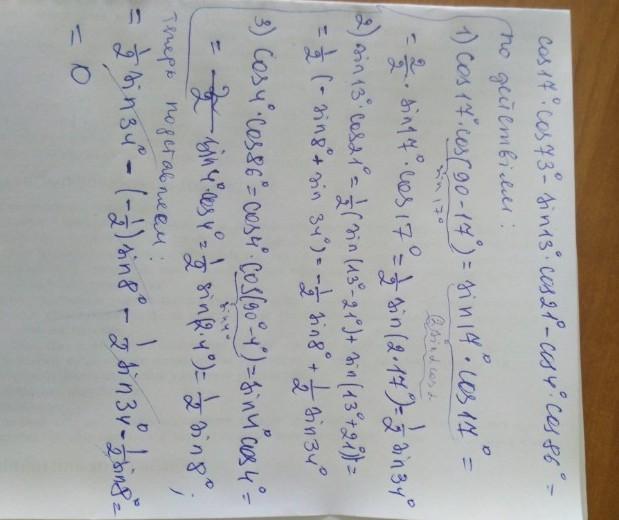 cos17°·cos73° - sin13°·cos21° - cos4°·cos86° =
по действиям:
1) cos17°·cos(90-17°) = sin17°·cos17° =
sin17°
(2sinα cosα
= 2/2 · sin17°·cos17° = 1/2 sin(2·17°) = 1/2 sin34°
2) sin13°·cos21° = 1/2 (sin(13°-21°) + sin(13°+21°)) =
= 1/2 (- sin8° + sin 34°) = - 1/2 sin8° + 1/2 sin34°
3) cos4°·cos86° = cos4°·cos(90°-4°) = sin4°·cos4° =
sin4°
= 2/2 sin4°·cos4° = 1/2 sin(2·4°) = 1/2 sin8°;
теперь подставляем:
= 1/2 sin34° - (-1/2) sin8° - 1/2 sin34° - 1/2 sin8° =
= 0